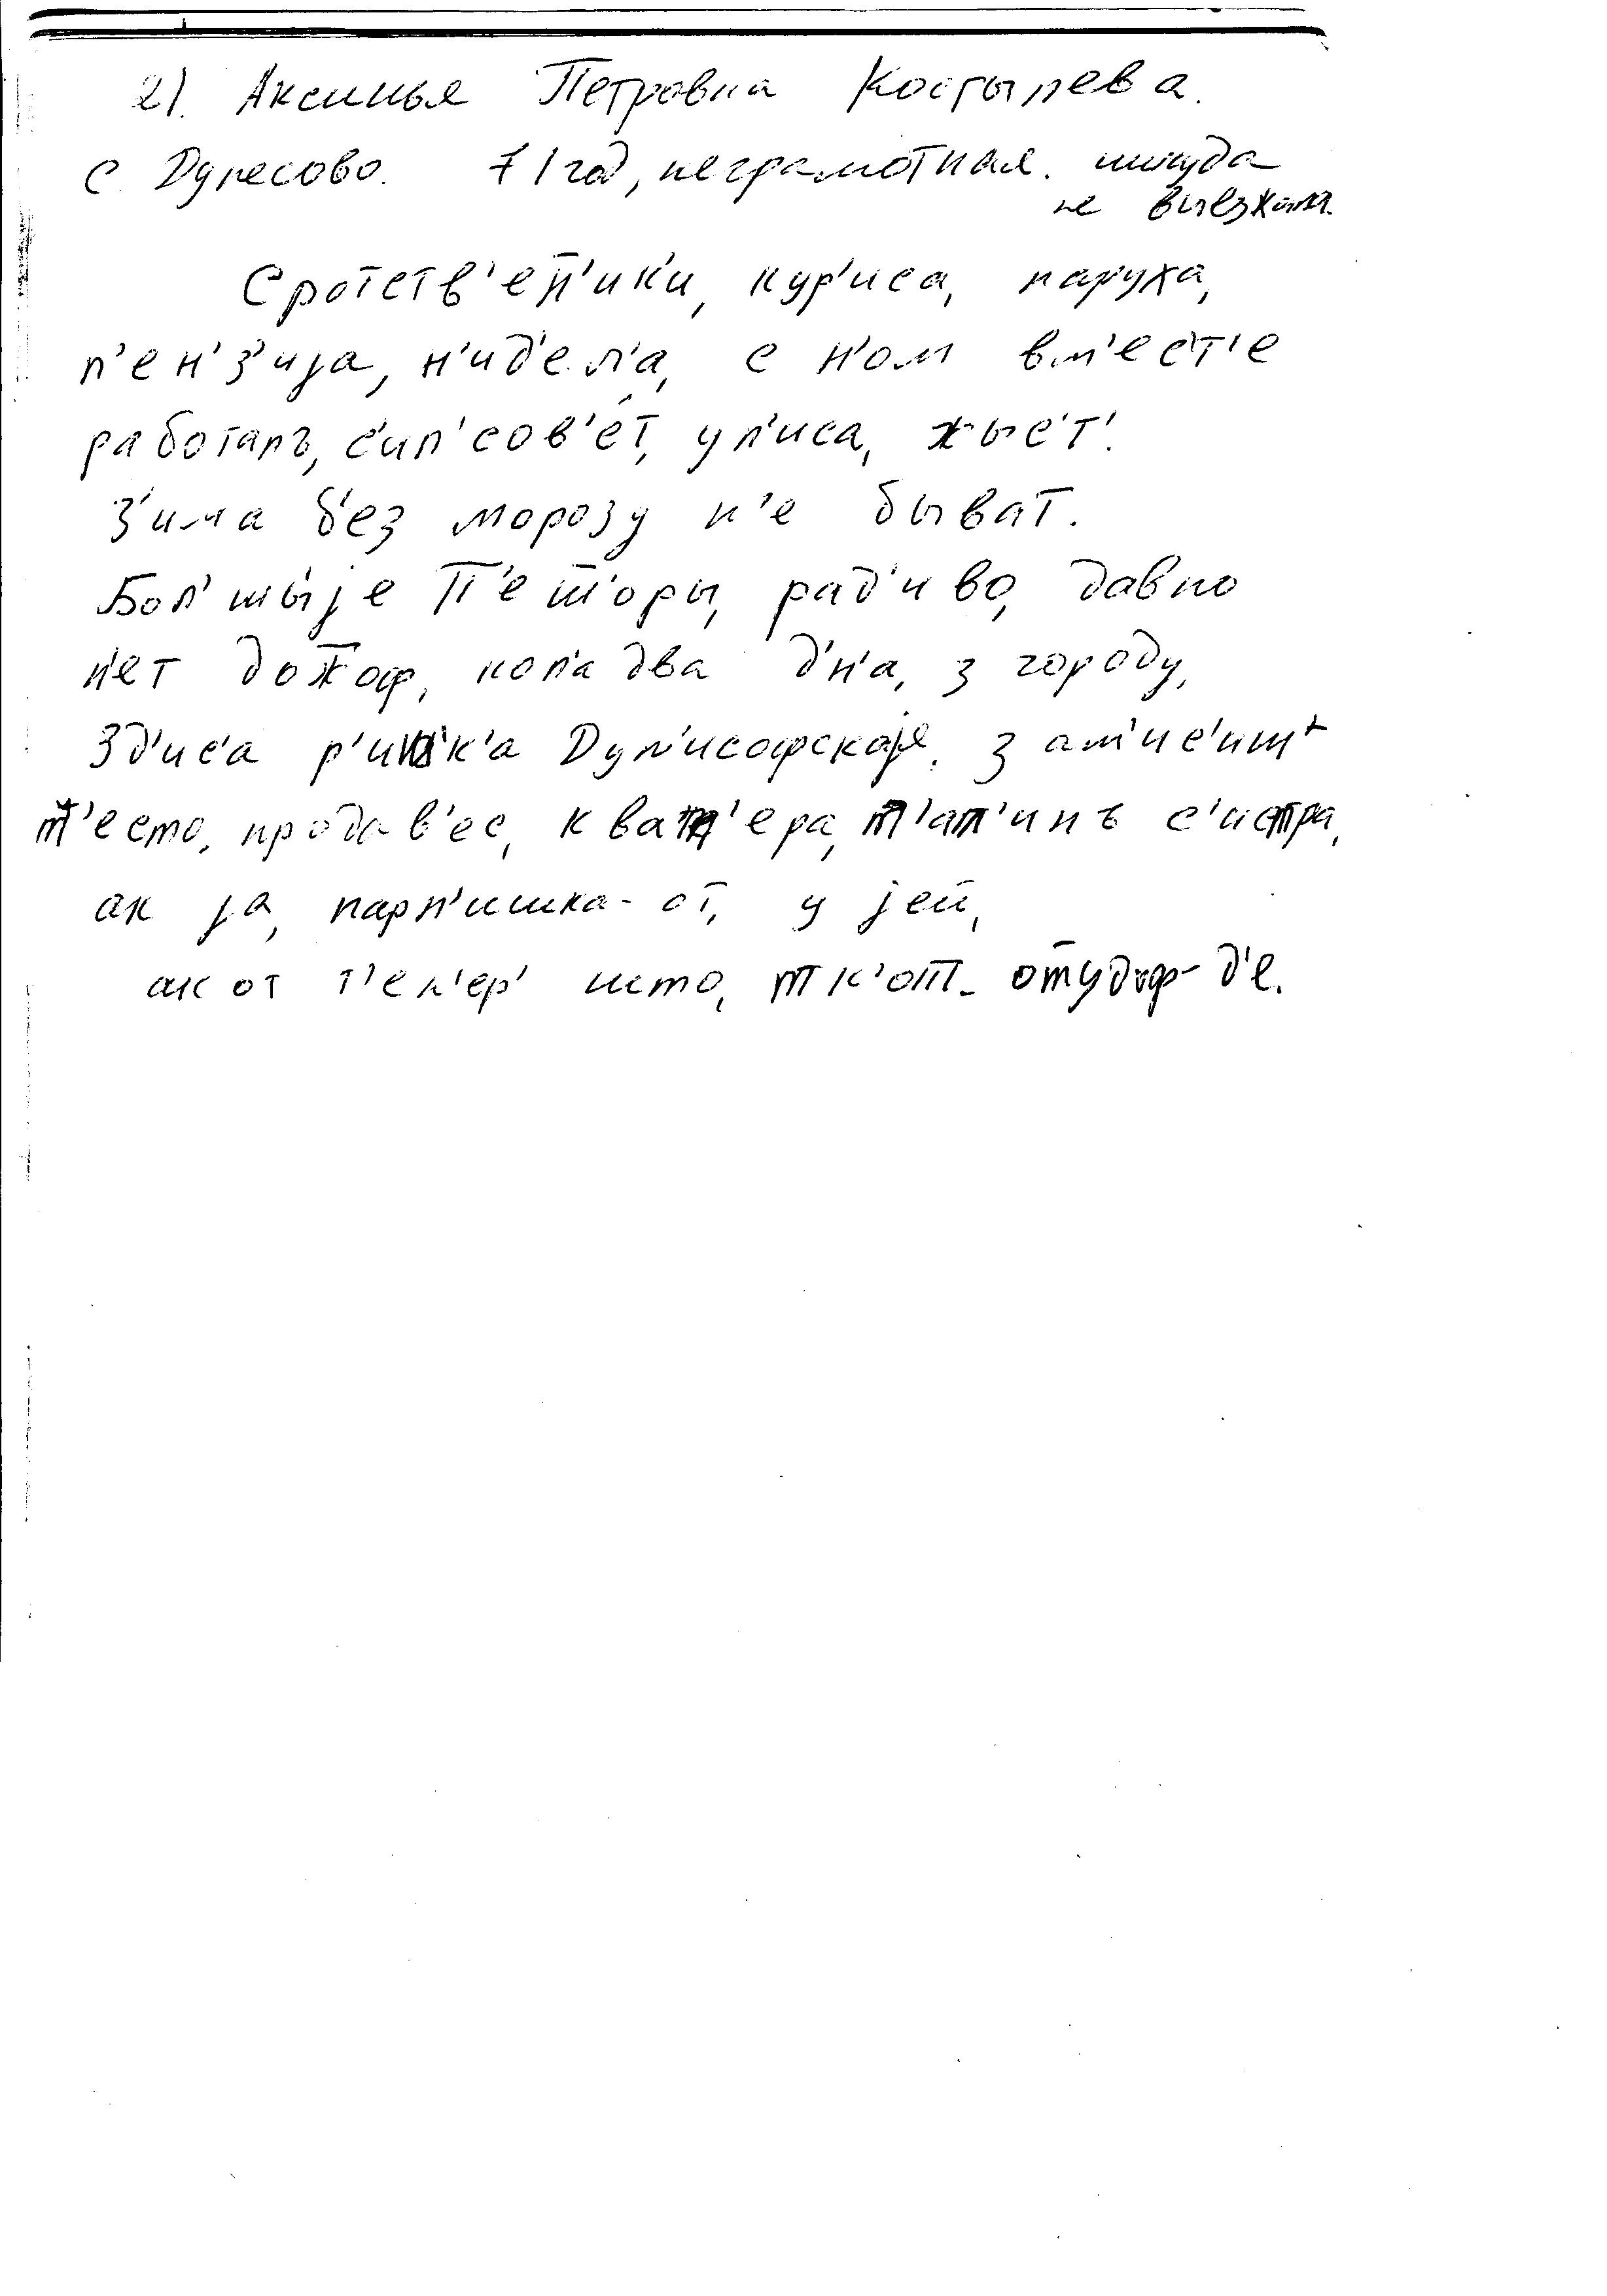 2). Аксинья Петровна Костылева.
с. Дулесово. 71 год, неграмотная. никуда
не выезжала.
Сротств'ен̄'ик'и, кур'иса, наруха,
п'ен'з'ија, н'ид'ел'а, с н'ом вм'ес'т'е
работалъ, с'ил'сов'е́т, ул'иса, жыс'т'.
З'има б'ез морозу н'е быват.
Бол'шы́је П'еш'оры, рад'иво, давно
н'ет дож̄оф, кол'а два д'н'а, з городу,
Зд'ис'а р'ишк'а Дул'исофскаје.
т'есто, продав'ес, кват'ера, т'ат'инъ с'истра,
ак ја, парн'ишка-от, у јей,
ак от т'еп'ер' што, тк'от- отудоф-д'е.